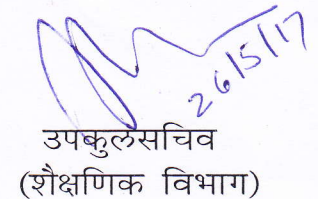 26/5/17
उपकुलसचिव
(शैक्षणिक विभाग)